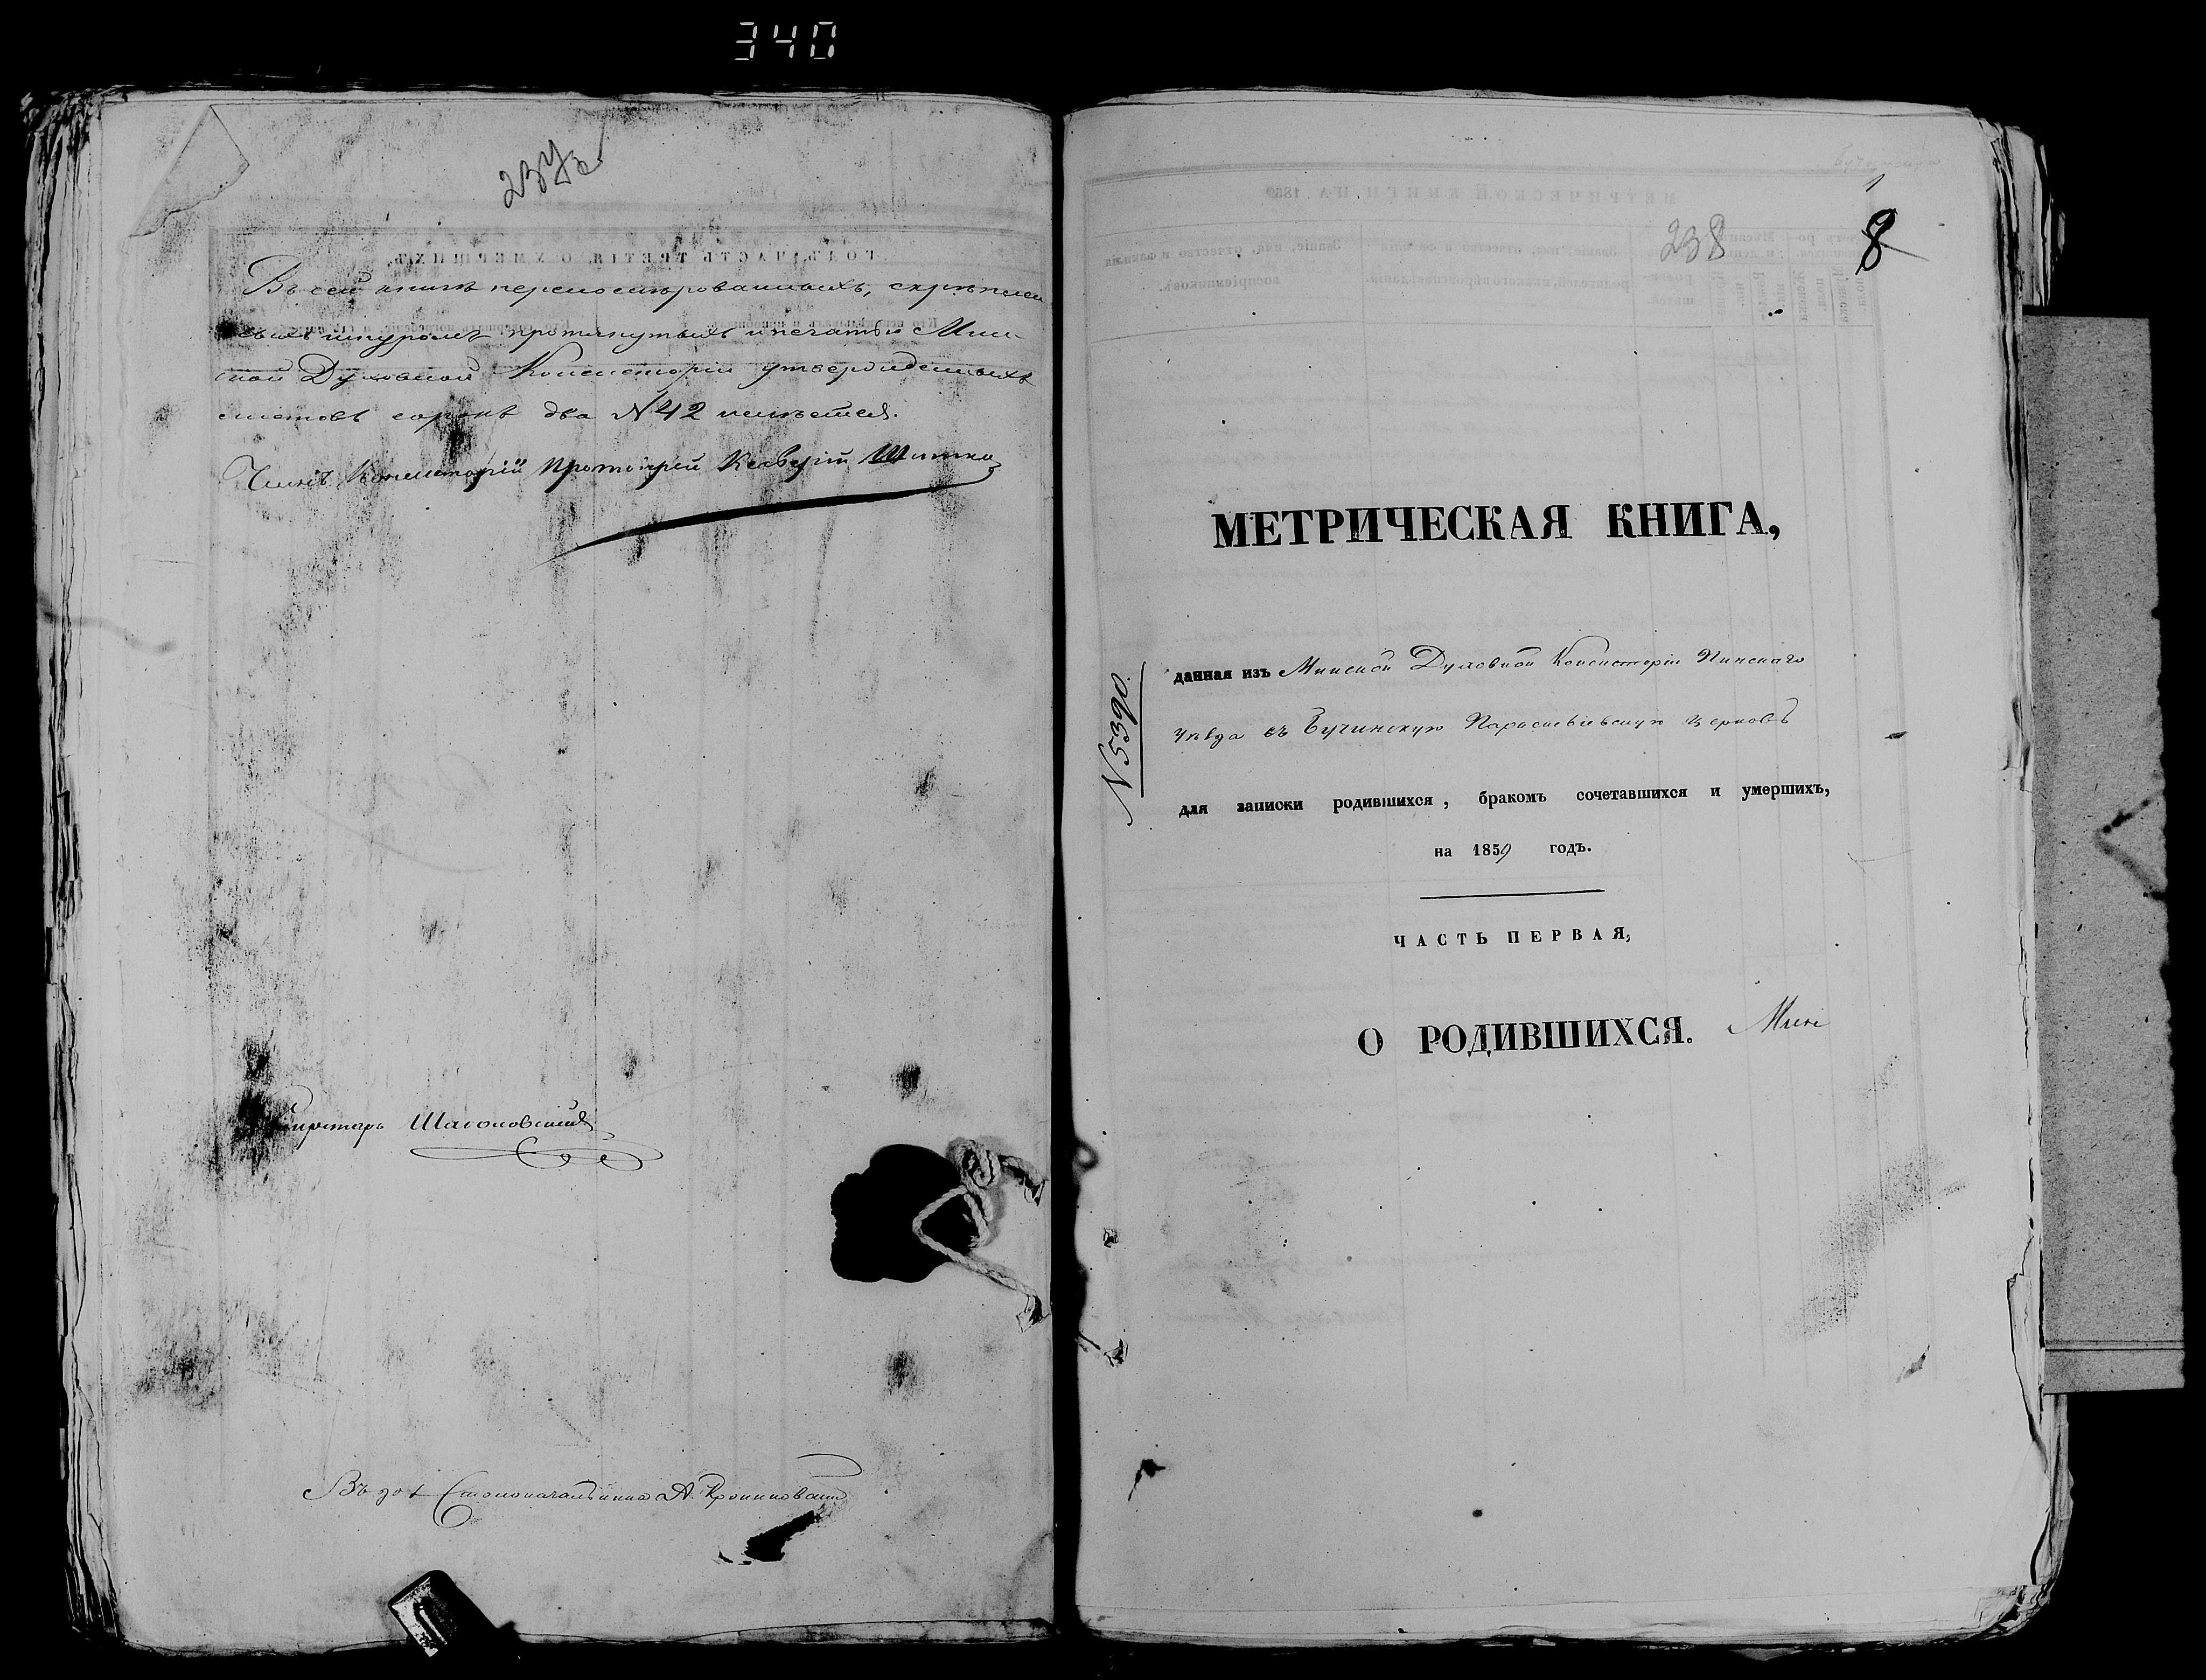 340
237
Въ сей книгѣ перенумерованныхъ, скрѣплен
ныхъ шнуромъ протянутыхъ и печатью Мин
ской Духовной Консисторіи утвержденныхъ
листовъ сорокъ два №42 имѣется.
Членъ Консисторіи Протоіерей
Секретарь
Въ дол. Столоначальника А.
238
8
МЕТРИЧЕСКАЯ КНИГА,
№5390.
данная изъ Минской Духовной Консисторіи Пинскаго
уѣзда въ Бучинскую Параскевіевскую церковь
для записки родившихся, бракомъ сочетавшихся и умершихъ,
на 1859 годъ.
ЧАСТЬ ПЕРВАЯ,
О РОДИВШИХСЯ.